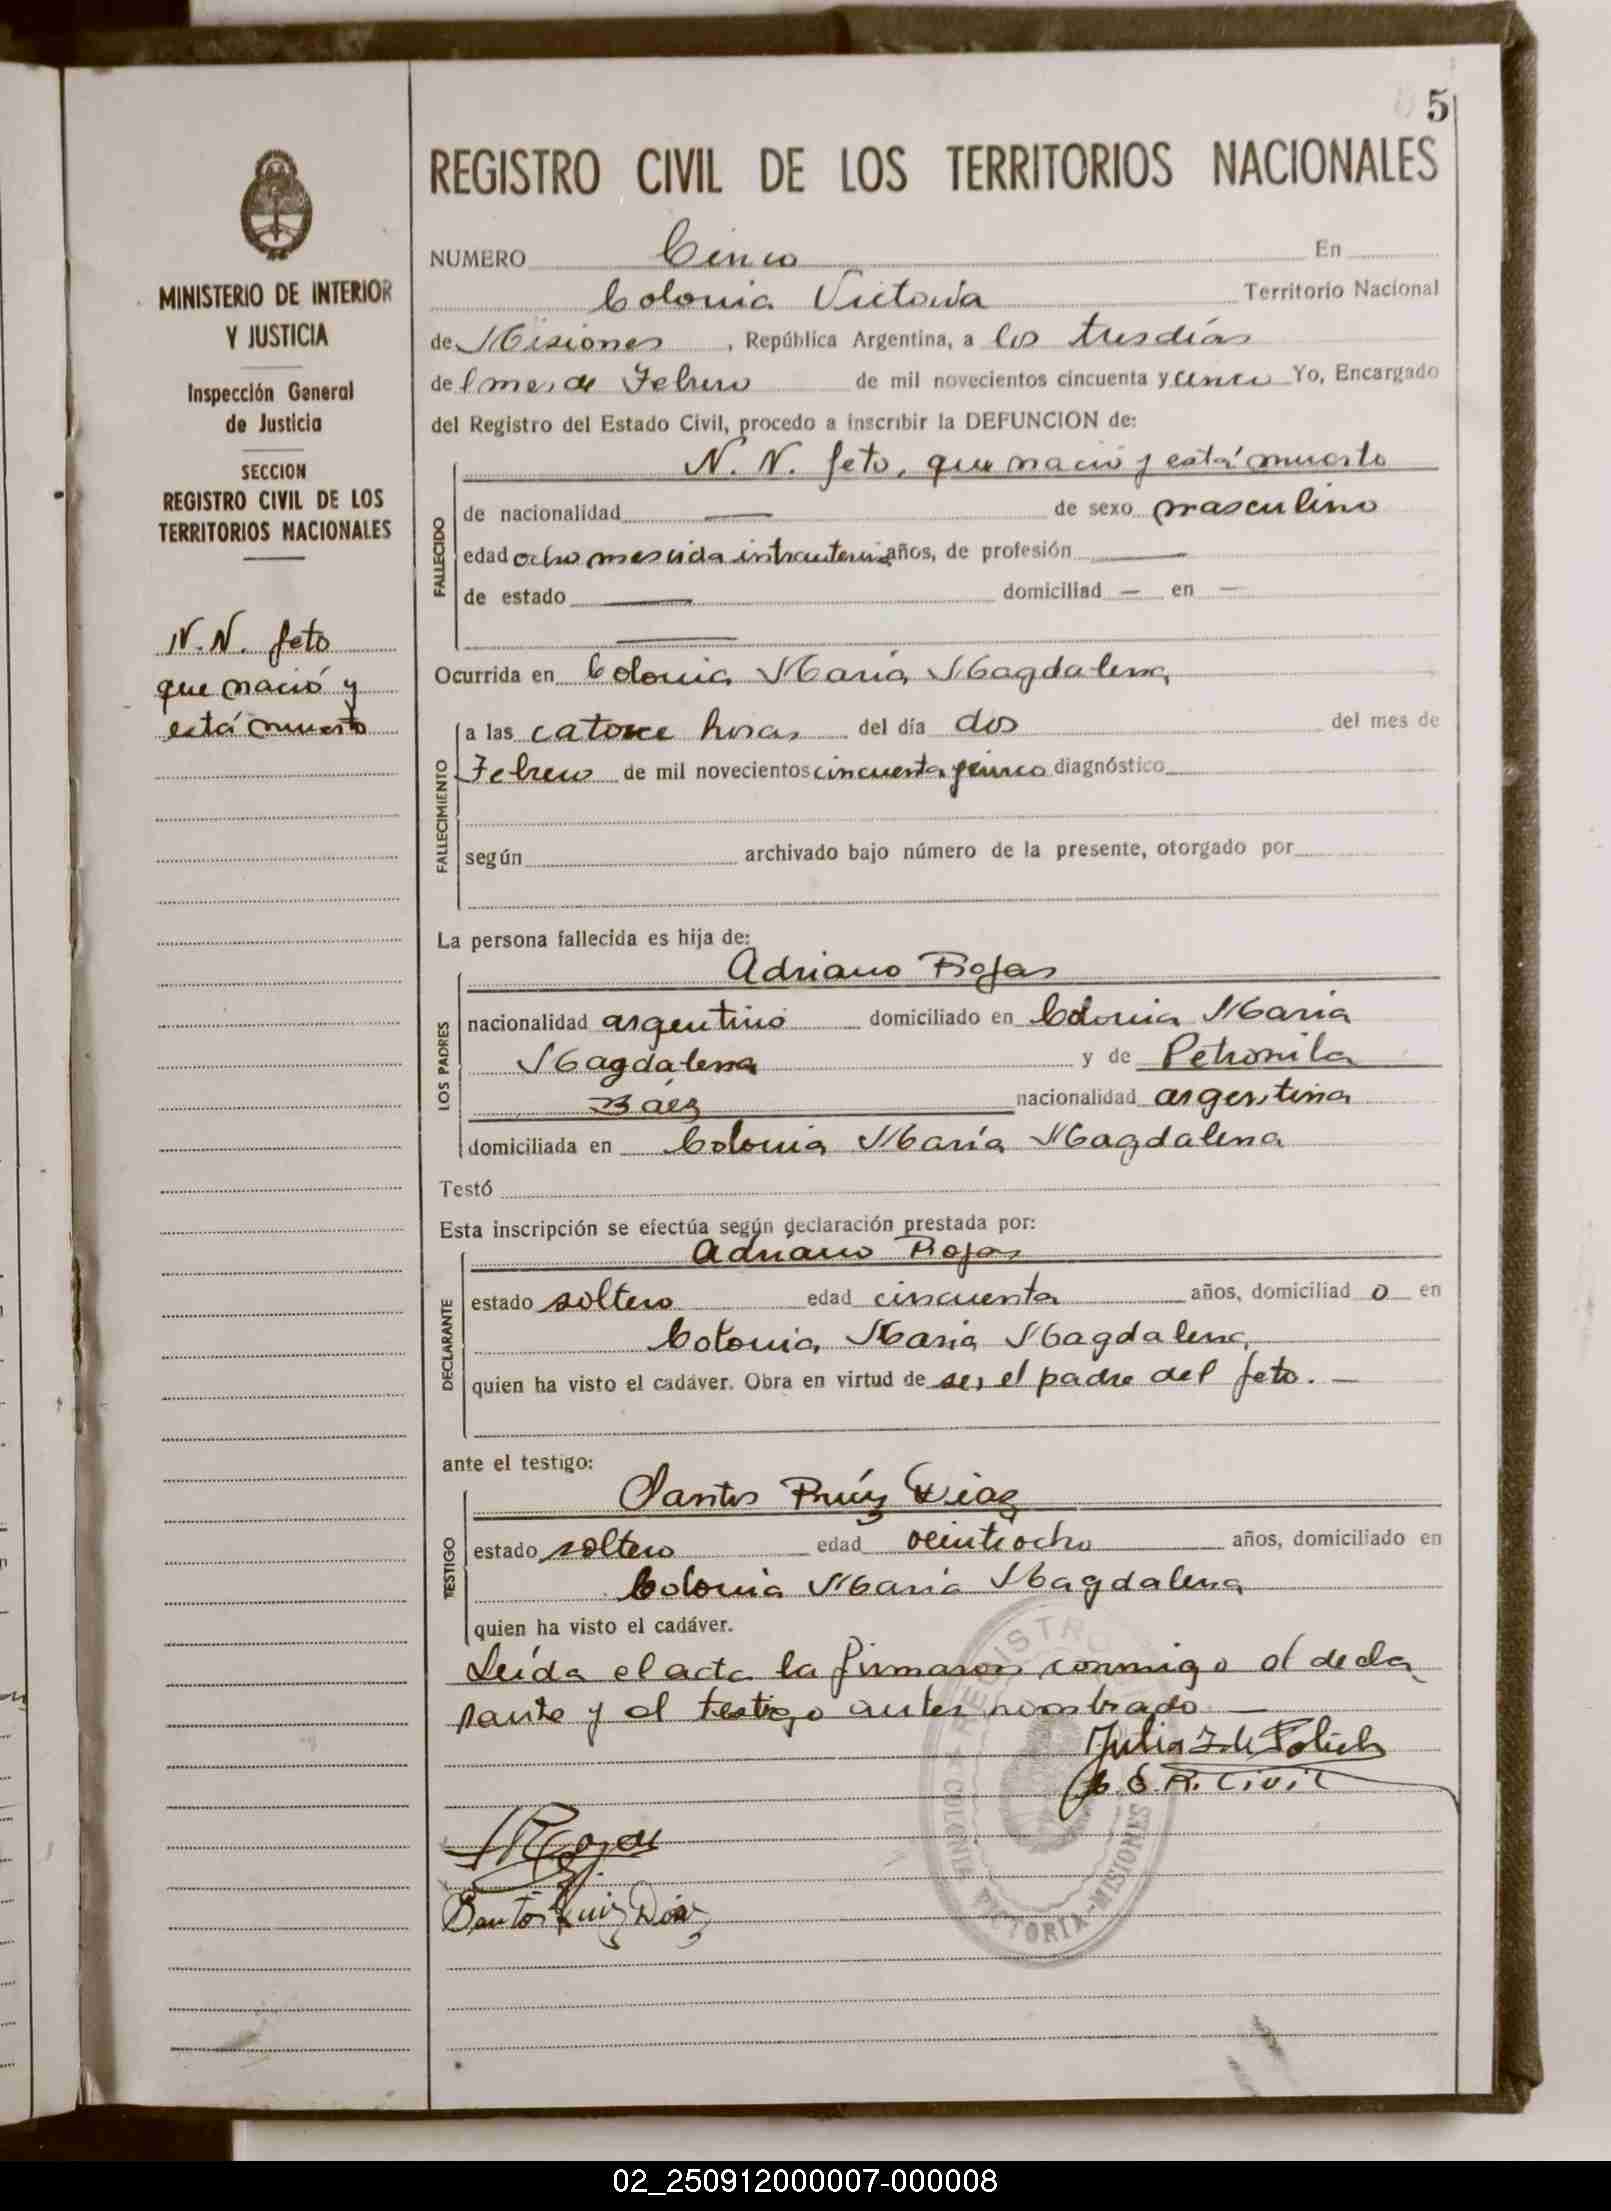 5
REGISTRO CIVIL DE LOS TERRITORIOS NACIONALES
MINISTERIO DE INTERIOR
Y JUSTICIA
Inspección General
de Justicia
SECCION
REGISTRO CIVIL DE LOS
TERRITORIOS NACIONALES
N.N. feto
que nació y
está muerto
NUMERO Cinco En
Colonia Victoria Territorio Nacional
de Misiones, República Argentina, a los tres días
del mes de Febrero de mil novecientos cincuenta y cinco Yo, Encargado
del Registro del Estado Civil, procedo a inscribir la DEFUNCION de:
FALLECIDO
N. N. feto, que nació y está muerto
de nacionalidad — de sexo masculino
edad ocho mes vida intrauterina años, de profesión —
de estado — domiciliad — en —
—
Ocurrida en Colonia María Magdalena
FALLECIMIENTO
a las catorce horas del día dos del mes de
Febrero de mil novecientos cincuenta y cinco diagnóstico
según archivado bajo número de la presente, otorgado por
La persona fallecida es hija de:
LOS PADRES
Adriano Rojas
nacionalidad argentino domiciliado en Colonia María
Magdalena y de Petronila
Báez nacionalidad argentina
domiciliada en Colonia María Magdalena
Testó
Esta inscripción se efectúa según declaración prestada por:
DECLARANTE
Adriano Rojas
estado soltero edad cincuenta años, domiciliad o en
Colonia María Magdalena,
quien ha visto el cadáver. Obra en virtud de ser el padre del feto. —
ante el testigo:
TESTIGO
Santos Ruíz Diaz
estado soltero edad veintiocho años, domiciliado en
Colonia María Magdalena
quien ha visto el cadáver.
Leída el acta la firmaron conmigo el decla
rante y el testigo antes nombrado —
Julia Z. de
E. R. Civil
Rojas
Santos Ruiz Diaz
REGISTRO COLONIA VICTORIA-MISIONES
02_250912000007-000008